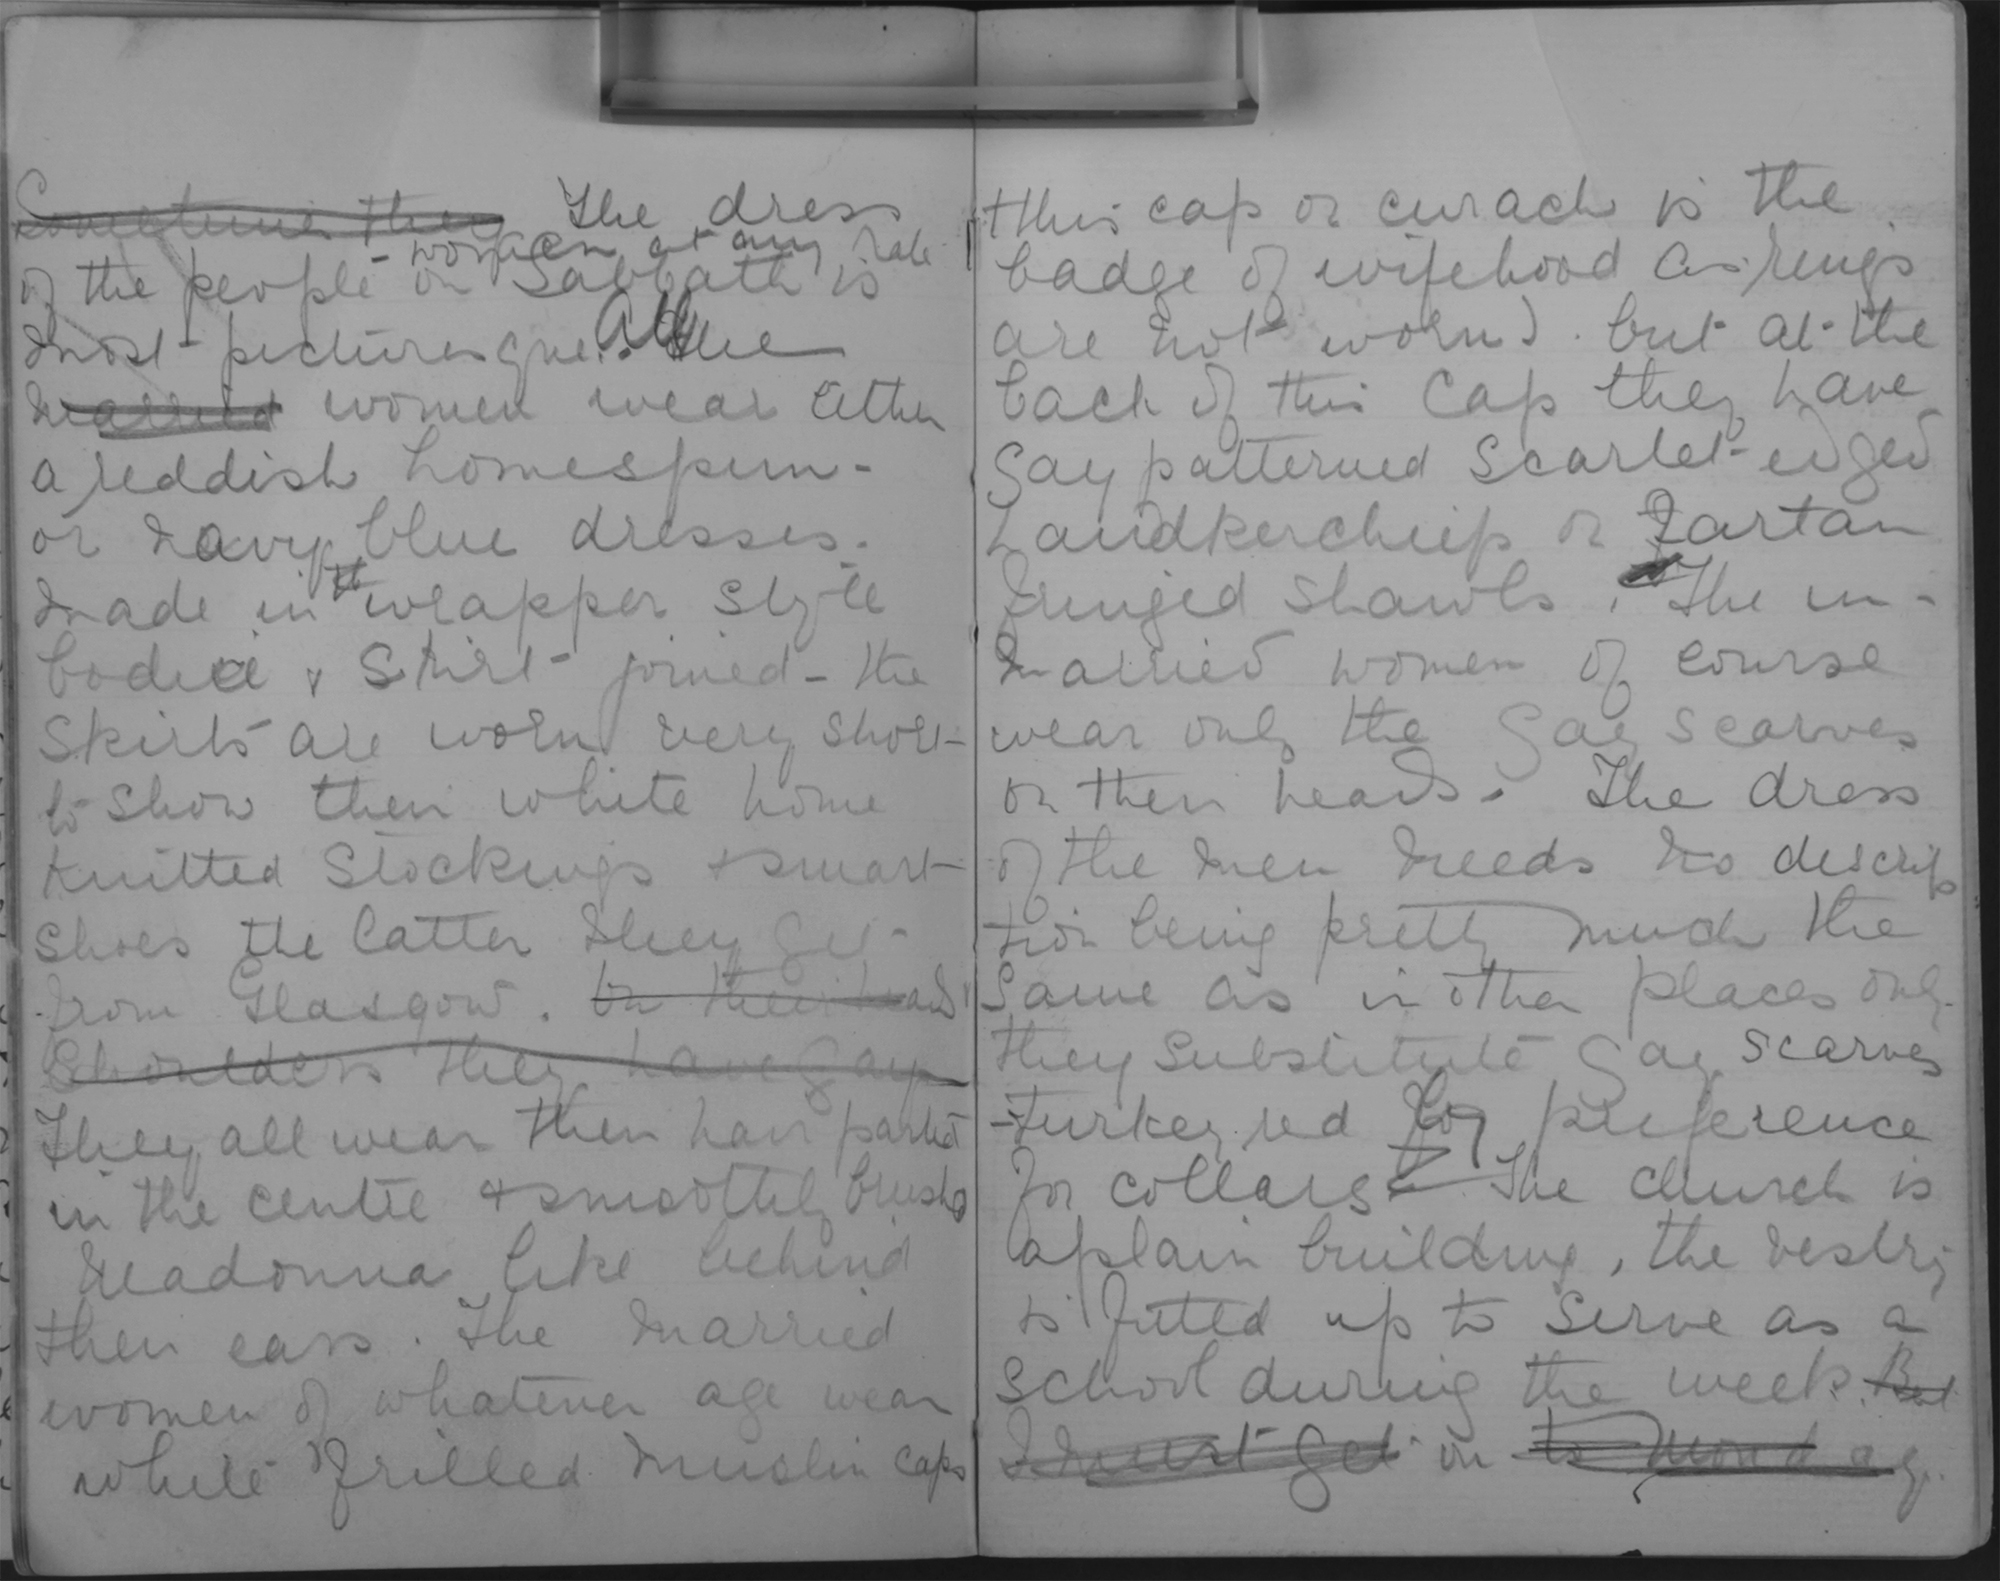 Sometimes they The dress
- women at any rate
of the people on Sabbath is
most picturesque. All the
married women wear either
a reddish homespun -
or navy blue dresses.
made in the wrapper style
bodice & skirt joined - the
skirts are worn very short
to show their white home
knitted stockings & smart
shoes the latter they get
from Glasgow. On their heads &
shoulders they have gay
They all wear their hair parted
in the centre & smoothly brushed
Madonna like behind
their ears. The married
women of whatever age wear
white frilled muslin caps
this cap or curach is the
badge of wifehood as rings
are not worn). but at the
back of this cap they have
gay patterned scarlet-edged
handkerchiefs or Tartan
fringed shawls. The un-
married women of course
wear only the gay scarves
on their heads. The dress
of the men needs no descrip
tion being pretty much the
same as in other places only
they substitute gay scarves
- turkey red by preference
for collars. The church is
a plain building, the vestry
is fitted up to serve as a
school during the week. But
I must get on to Monday.